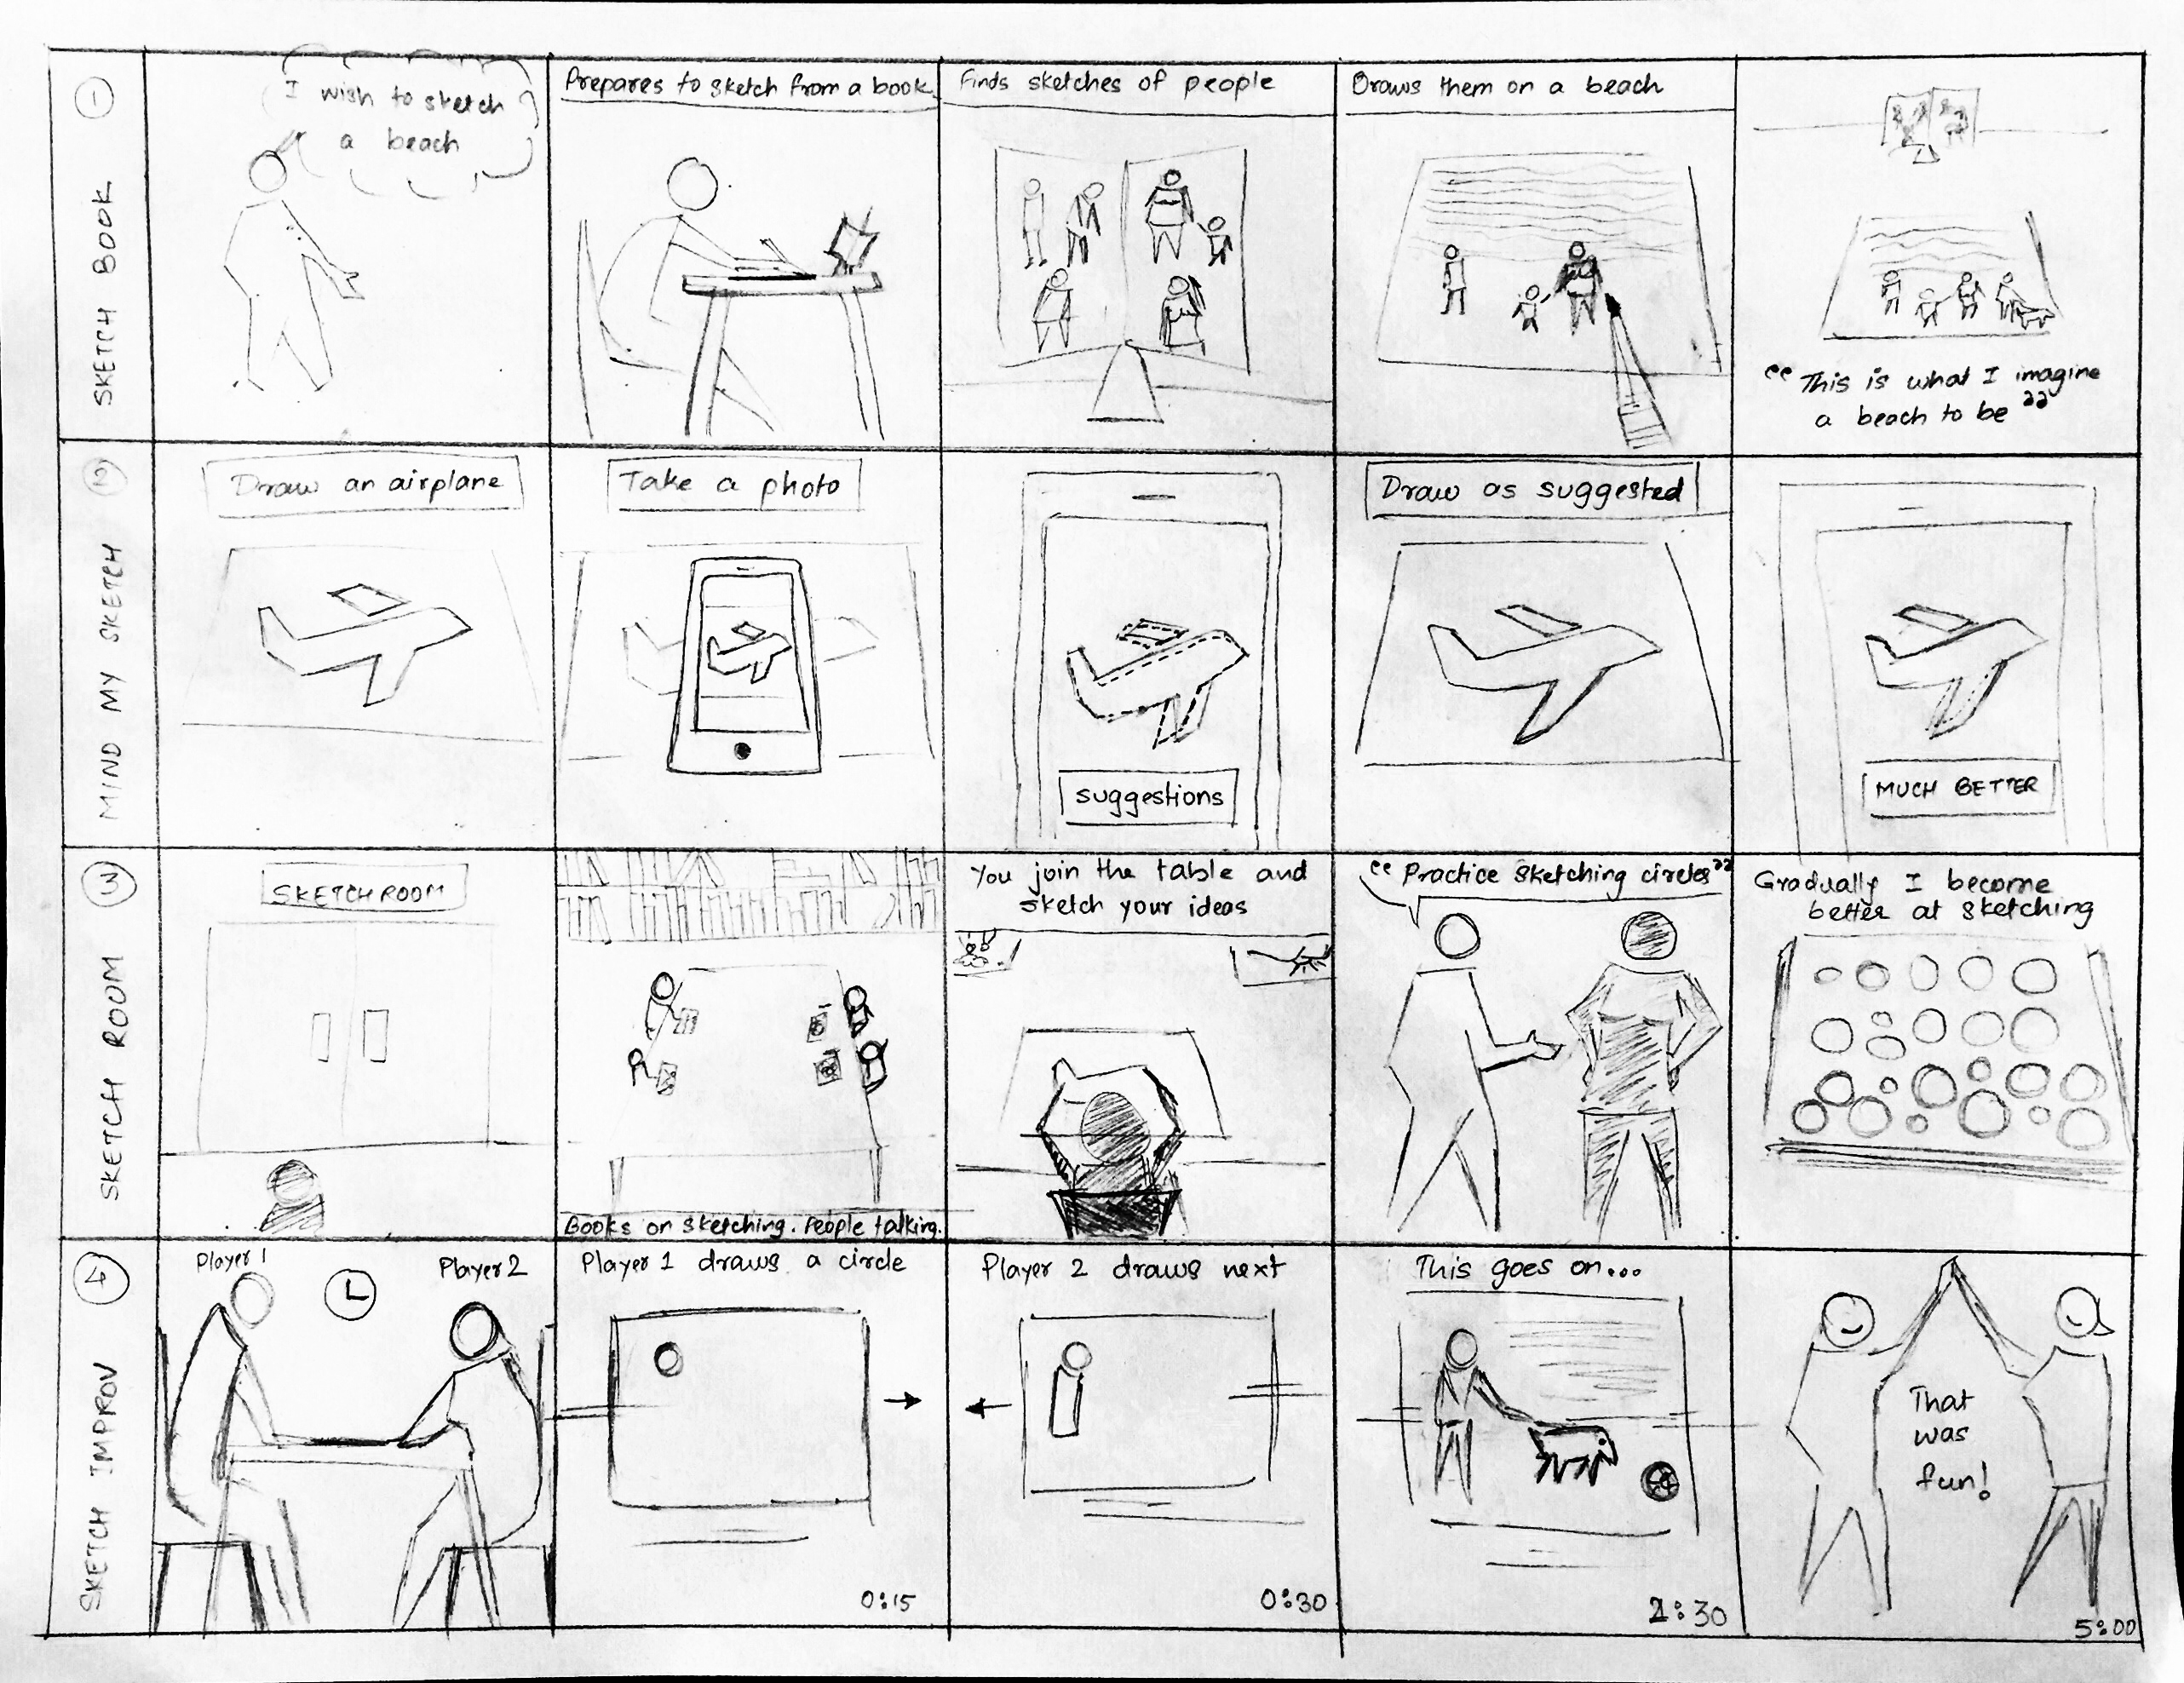 1
SKETCH BOOK
I wish to sketch
a beach
Prepares to sketch from a book.
Finds sketches of people
Draws them on a beach
"This is what I imagine
a beach to be"
2
MIND MY SKETCH
Draw an airplane
Take a photo
suggestions
Draw as suggested
MUCH BETTER
3
SKETCH ROOM
SKETCH ROOM
Books on sketching. People talking.
You join the table and
sketch your ideas
"Practice sketching circles"
Gradually I become
better at sketching
4
SKETCH IMPROV
Player 1
Player 2
Player 1 draws a circle
0:15
Player 2 draws next
0:30
This goes on...
:30
That
was
fun!
5:00